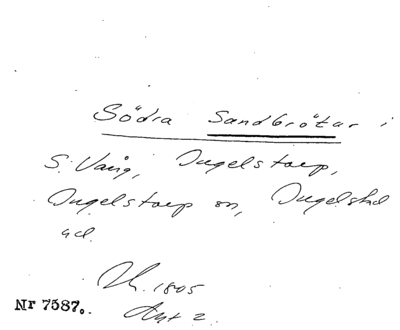 Södra Sandbrötar i
S. Vång, Ingelstorp,
Ingelstorp sn, Ingelstad
hd.
Sk. 1805
Akt 2
Nr 7587.